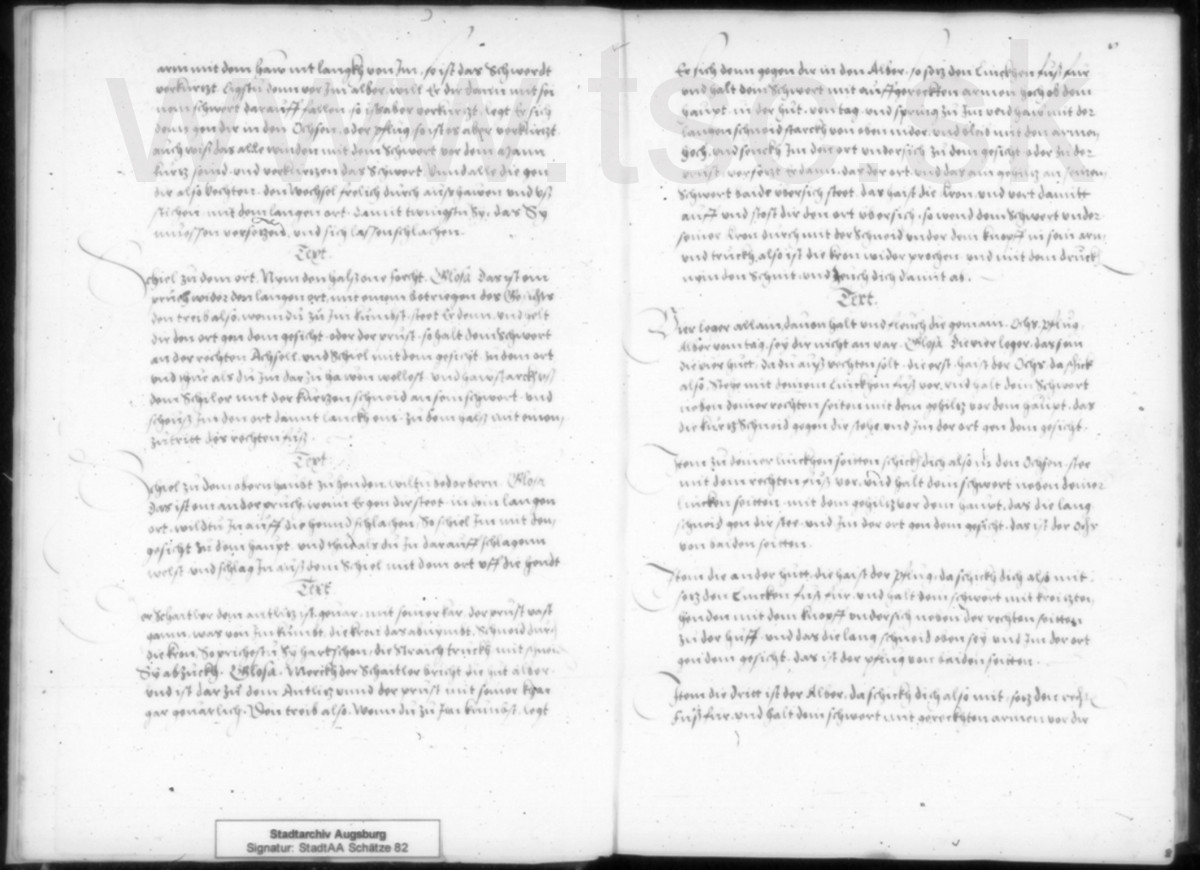 arm mit dem haw nit langkh von Im, so ist das Schwerdt
verkürtzt. ligstu denn vor Im alber, wilt Er dir dann mit sei
nem schwert darauff fallen, so ist aber verkürtzt, legt Er sich
denn gen dir in den Ochsen, oder pflug, so ist er aber verkürtzt
auch wiß das alle winden mit dem Schwert vor dem Mann
kurtz seind, und verkürtzen das Schwert, Unnd alle die gen
dir also vechten, den Wechsel frölich durch auß hawen und uß
stichen, mit dem langen ort, damit twingstu Sy, das Sy
muessen versetzend, und sich lassen schlachen.
Text.
Schiel zu dem ort, Nym den halß one forcht. Glosa. Das ist ein
pruch wider den langen ort, mit einem betriegen des Gesichts
den treib also, wenn du zu Im kumbst, steet Er denn, und helt
dir den ort gen dem gesicht, oder der prust, so halt dein Schwert
an der rechten Achsell, und Schiel mit dem gesicht, zu dem ort
und thue als du Im dar zu hawen wollest, und haw starckh uß
dem Schiler mit der kurtzen schneid an sein schwert, und
scheuß Im den ort damit lanckh ein, zu dem halß mit einem
zutritt des rechten fuß.
Text.
Schiel zu dem obern haupt zu henden, wiltu bederbern. Glosa
das ist ein ander pruch, wenn Er gen dir steet, in dem langen
ort, wildtu In auff die hennd schlachen, So schiel Im mit dem
gesicht zu dem haupt, und thue als du In darauff schlagenn
welst, und schlag In auß dem Schiel mit dem ort uff die hendt
Text
er Schaitler dem antlitz ist gevar, mit seiner kar, der prust vast
gevar, was von Im kumbt, die kron das abnymbt, Schneid durch
die kron, So prichestu Sy hart schon, die Straich truckh, mit schnit
Sy abzuckh. Glosa. Merckh der Schaitler bricht die hut alber
und ist dar zu dem Antlitz unnd der prust mit seiner kar
gar gevarlich. Den treib also, Wenn du zu Im kumbst, legt
Er sich denn gegen dir in den Alber, so setz den Linckhen fuß für
und halt dein Schwert mit auffgereckten armen hoch ob dem
haupt, in der hut, von tag, und spring zu Im und haw mit der
langen schneid starckh von oben nider, und bleib mit den armen
hoch, und senckh Im den ort undersich zu dem gesicht oder zu der
prust, versetzt Er dann, das der ort und das gehiltz an seinem
Schwert baide übersich steet, das haist die kron, und vert damitt
auff und stost dir den ort übersich, so wend dein Schwert under
seiner kron durch mit der Schneid under dem knopff in sein arm
und truckh, also ist die kron wider prochen, und mit dem druckh
nym den Schnit, und zeuch dich damit ab.
Text.
Vier leger allain, davon halt und fleuch die gemain. Ochs, Pflug
Alber vom tag, sey dir nicht an var. Glosa. Die vier leger, das sein
die vier hutt, da du auß vechten solt. die erst, haist der Ochs, da schick
also, Stehe mit deinem Linckhen fuß vor, und halt dein Schwert
neben deiner rechten seiten mit dem gehiltz vor dem haupt, das
die kurtz Schneid gegen dir stehe, und Im der ort gen dem gesicht.
Item zu deiner linckhen seitten schickh dich also in den Ochsen, stee
mit dem rechten fuß vor, und halt dein schwert neben deiner
lincken seitten, mit dem gehiltz vor dem haupt, das die lang
schneid gen dir stee, und Im der ort gen dem gesicht, das ist der Ochs
von baiden seitten.
Item die ander hutt, die haist der Pflug, da schickh dich also mit,
setz den Lincken fuß für, und halt dein schwert mit kreitzten
henden mit dem knopff undersich neben der rechten seitten
zu der huff, und das die lang schneid oben sey, und Im der ort
gen dem gesicht, das ist der pflug von baiden seitten.
Item die dritt ist der Alber, da schickh dich also mit, setz den recht
fuß für, und halt dein schwert mit gereckhten armen vor dir
Stadtarchiv Augsburg
Signatur: StadtAA Schätze 82
www.tsc.sk